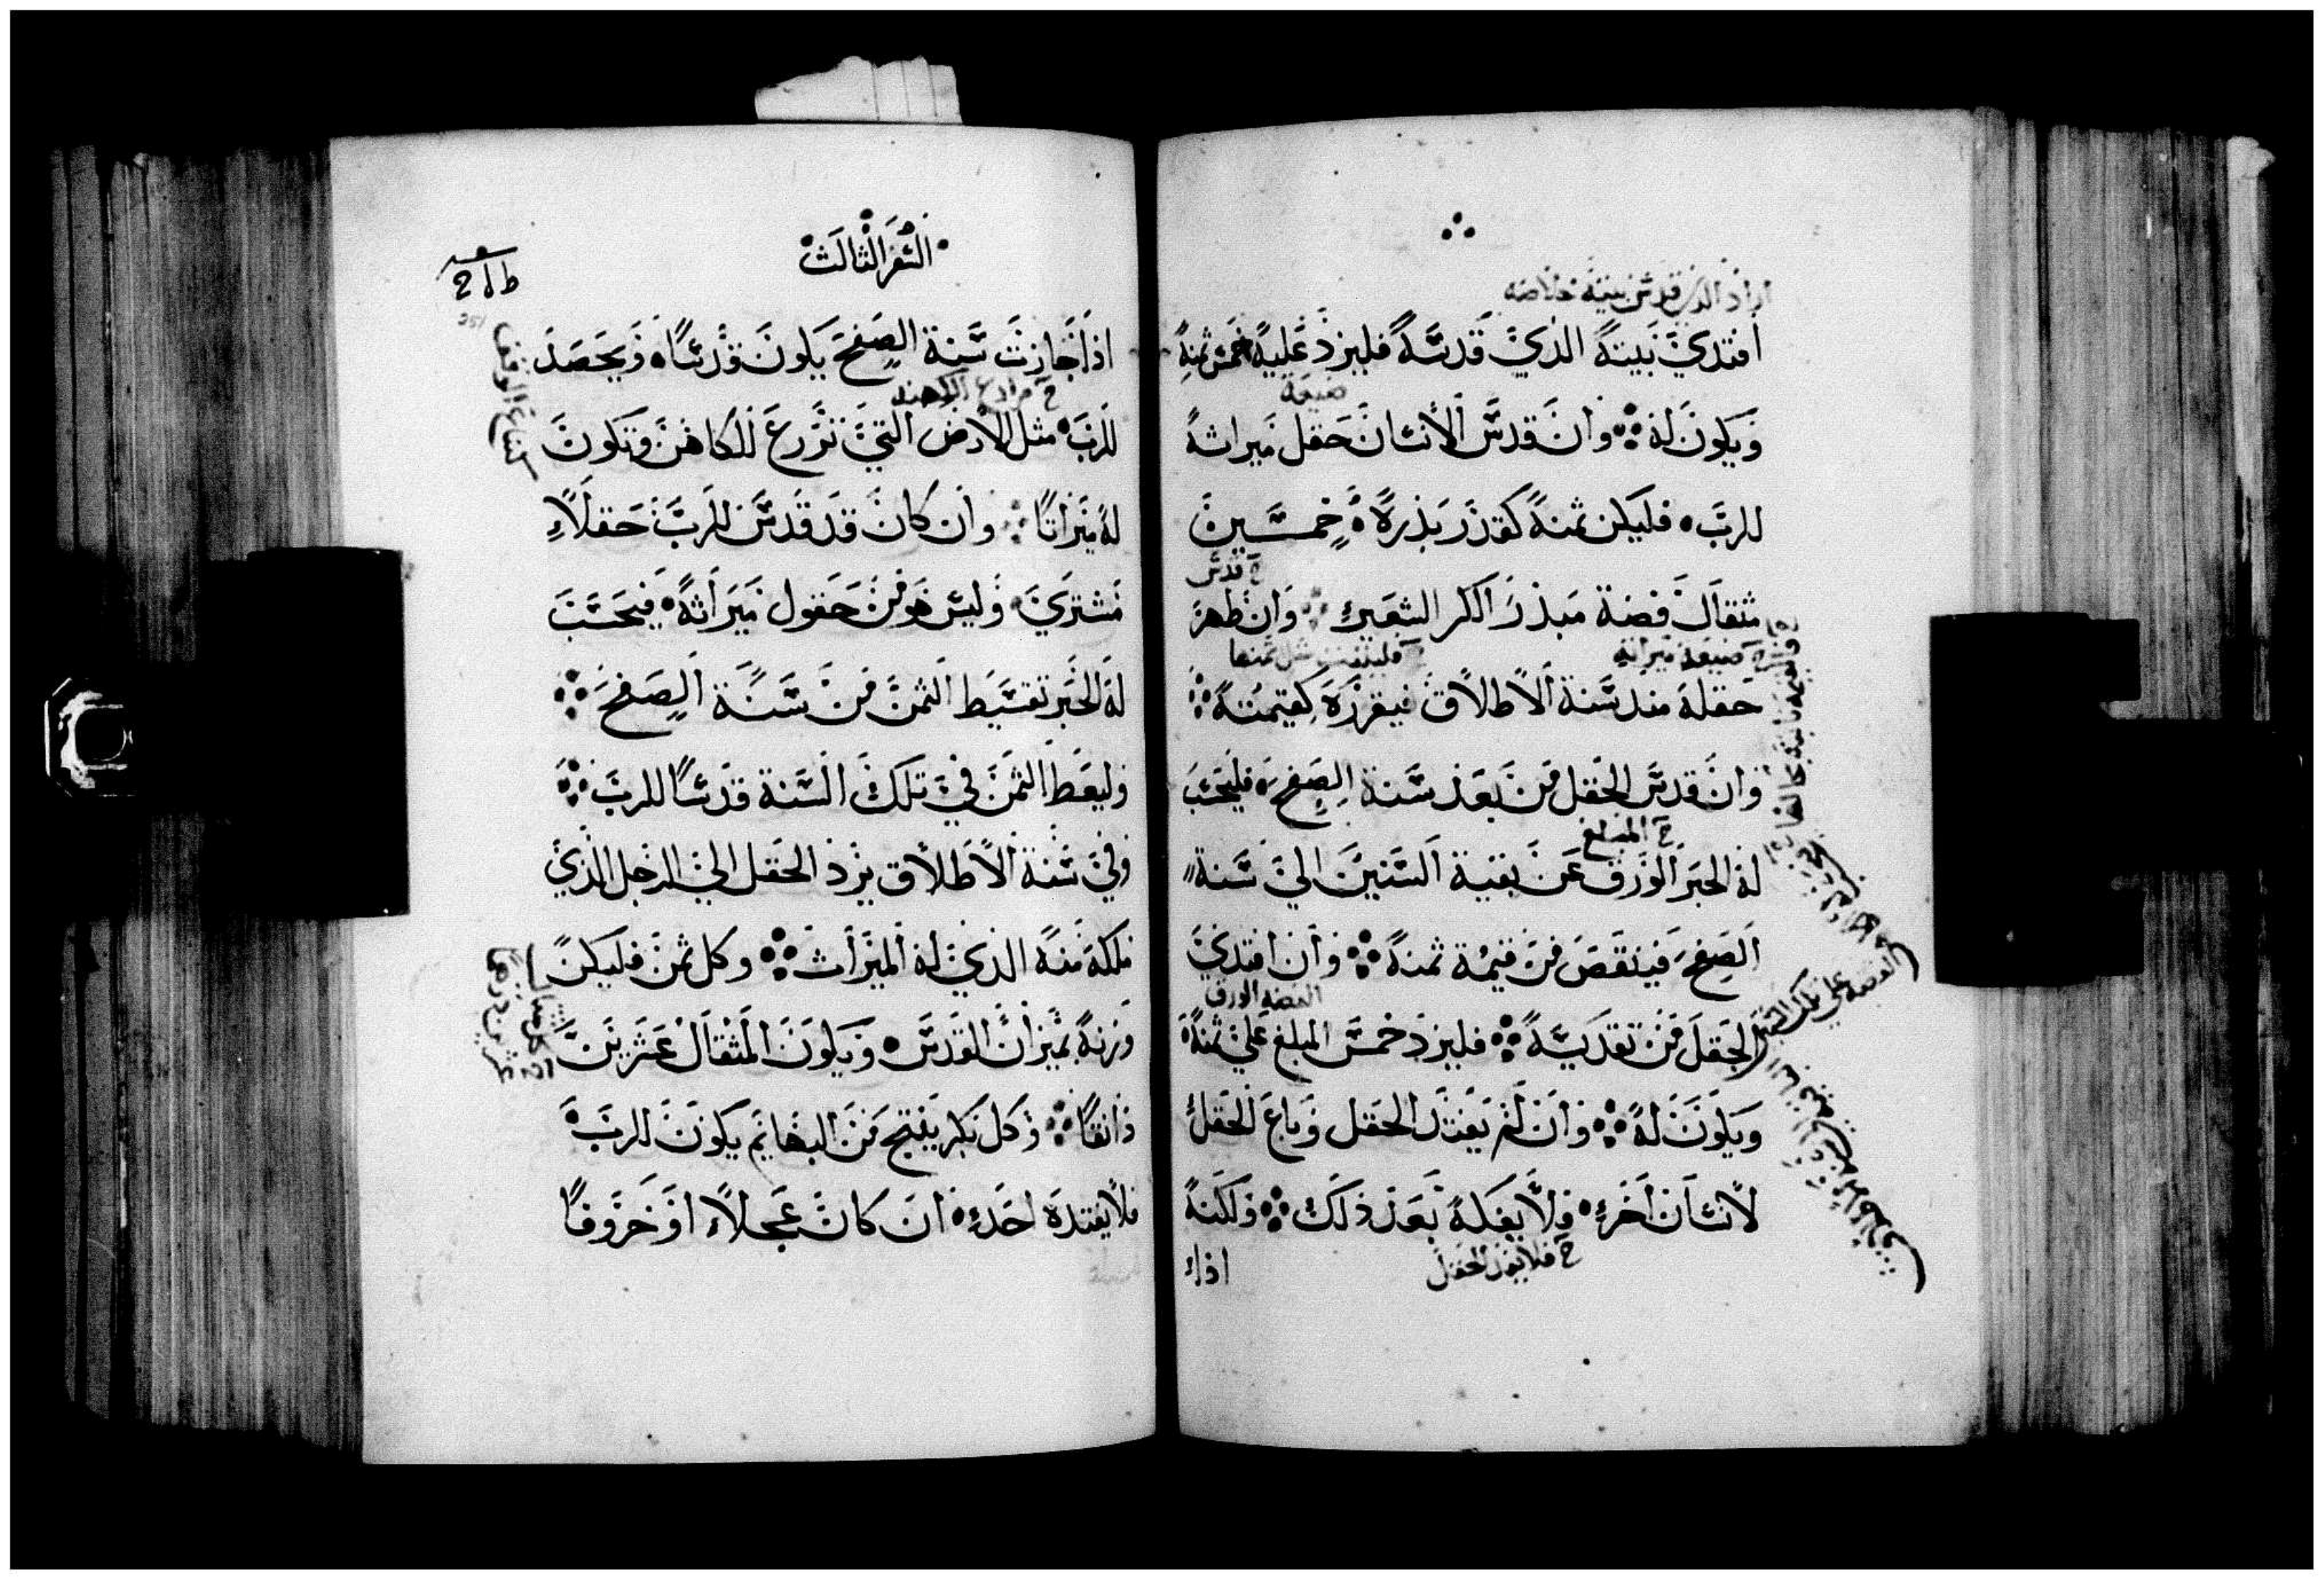 افتدي بيته الذي قدسه فليزد عليه خمس ثمنه
ضيعة
ويكون له وان قدس الانسان حقل ميراثه
للرب فليكن ثمنه كقدر بذره خمسين
خ قدس
مثقال فضة مبذر الكر الشعير وان طهر
حقله منذ سنة الاطلاق فيفرزه كقيمته
وان قدس الحقل من بعد سنة الصفح فليحسب
خ المبلغ
له الحبر الورق عن بقية السنين الي سنة
الصفح فينقص من قيمة ثمنه وان افتدي
الفضة الورق
الحقل من تقديسه فليزد خمس المبلغ علي ثمنه
ويكون له وان لم يفتد الحقل وباع الحقل
لانسان اخر فلا يفكه بعد ذلك ولكنه
خ فلا يفك الحقل
اذا
السفر الثالث
اذا جازت سنة الصفح يكون قدسا ويحصد
للرب مثل الارض التي تزرع للكاهن وتكون
له ميراثا وان كان قد قدس للرب حقلا
مشتري وليس هو من حقول ميراثه فيحسب
له الحبر تقسيط الثمن من سنة الصفح
وليعط الثمن في تلك السنة قدسا للرب
وفي سنة الاطلاق يرد الحقل الي الرجل الذي
ملكه منه الذي له الميراث وكل ثمن فليكن
وزنه بميزان القدس ويكون المثقال عشرين
دانقا وكل بكر يفتح من البهايم يكون للرب
فلا يفتده احد ان كان عجلا او خروفا